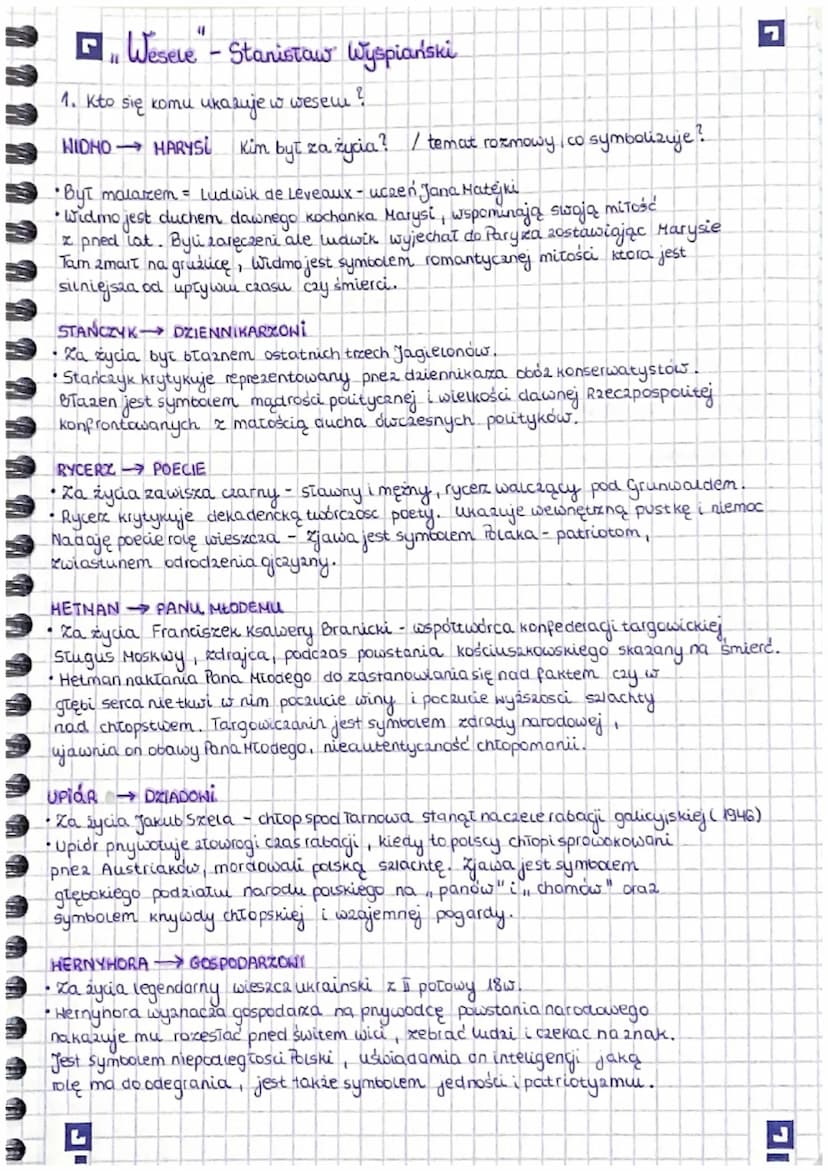 „Wesele" – Stanisław Wyspiański
1. Kto się komu ukazuje w weselu?
WIDMO → MARYSI Kim był za życia? / temat rozmowy, co symbolizuje?
• Był malarzem = Ludwik de Leveaux - uczeń Jana Matejki
• Widmo jest duchem dawnego kochanka Marysi, wspominają swoją miłość
z przed lat. Byli zaręczeni ale Ludwik wyjechał do Paryża zostawiając Marysie
Tam zmarł na gruźlicę, Widmo jest symbolem romantycznej miłości która jest
silniejsza od upływu czasu czy śmierci.
STAŃCZYK → DZIENNIKARZOWI
• Za życia był błaznem ostatnich trzech Jagielonów.
• Stańczyk krytykuje reprezentowany przez dziennikarza obóz konserwatystów.
Błazen jest symbolem mądrości politycznej i wielkości dawnej Rzeczpospolitej
konfrontowanych z małością ducha ówczesnych polityków.
RYCERZ → POECIE
• Za życia zawisza czarny - sławny i mężny, rycerz walczący pod Grunwaldem.
• Rycerz krytykuje dekadencką twórczość poety. Ukazuje wewnętrzną pustkę i niemoc
Nadaję poecie rolę wieszcza - Zjawa jest symbolem Polaka - patriotom,
zwiastunem odrodzenia ojczyzny.
HETMAN → PANU MŁODEMU
• Za życia Franciszek Ksawery Branicki - współtwórca konfederacji targowickiej,
Sługus Moskwy, zdrajca, podczas powstania kościuszkowskiego skazany na śmierć.
• Hetman nakłania Pana Młodego do zastanowiania się nad faktem czy w
głębi serca nie tkwi w nim poczucie winy i poczucie wyższości szlachty
nad chłopstwem. Targowiczanin jest symbolem zdrady narodowej,
ujawnia on obawy Pana Młodego, nieautentyczność chłopomanii.
UPIÓR → DZIADOWI
• Za życia Jakub Szela - chłop spod Tarnowa stanął na czele rabacji galicyjskiej (1946)
• Upiór przywołuje złowrogi czas rabacji, kiedy to polscy chłopi sprowokowani
przez Austriaków, mordowali polską szlachtę. Zjawa jest symbolem
głębokiego podziału narodu polskiego na „panów" i „chamów" oraz
symbolem krzywdy chłopskiej i wzajemnej pogardy.
WERNYHORA → GOSPODARZOWI
• Za życia legendarny wieszcz ukraiński z II połowy 18w.
• Wernyhora wyznacza gospodarza na przywodcę powstania narodowego
nakazuje mu rozesłać przed świtem wici, zebrać ludzi i czekać na znak.
Jest symbolem niepodległości Polski, uświadamia on inteligencji jaką
rolę ma do odegrania, jest także symbolem jedności i patriotyzmu.